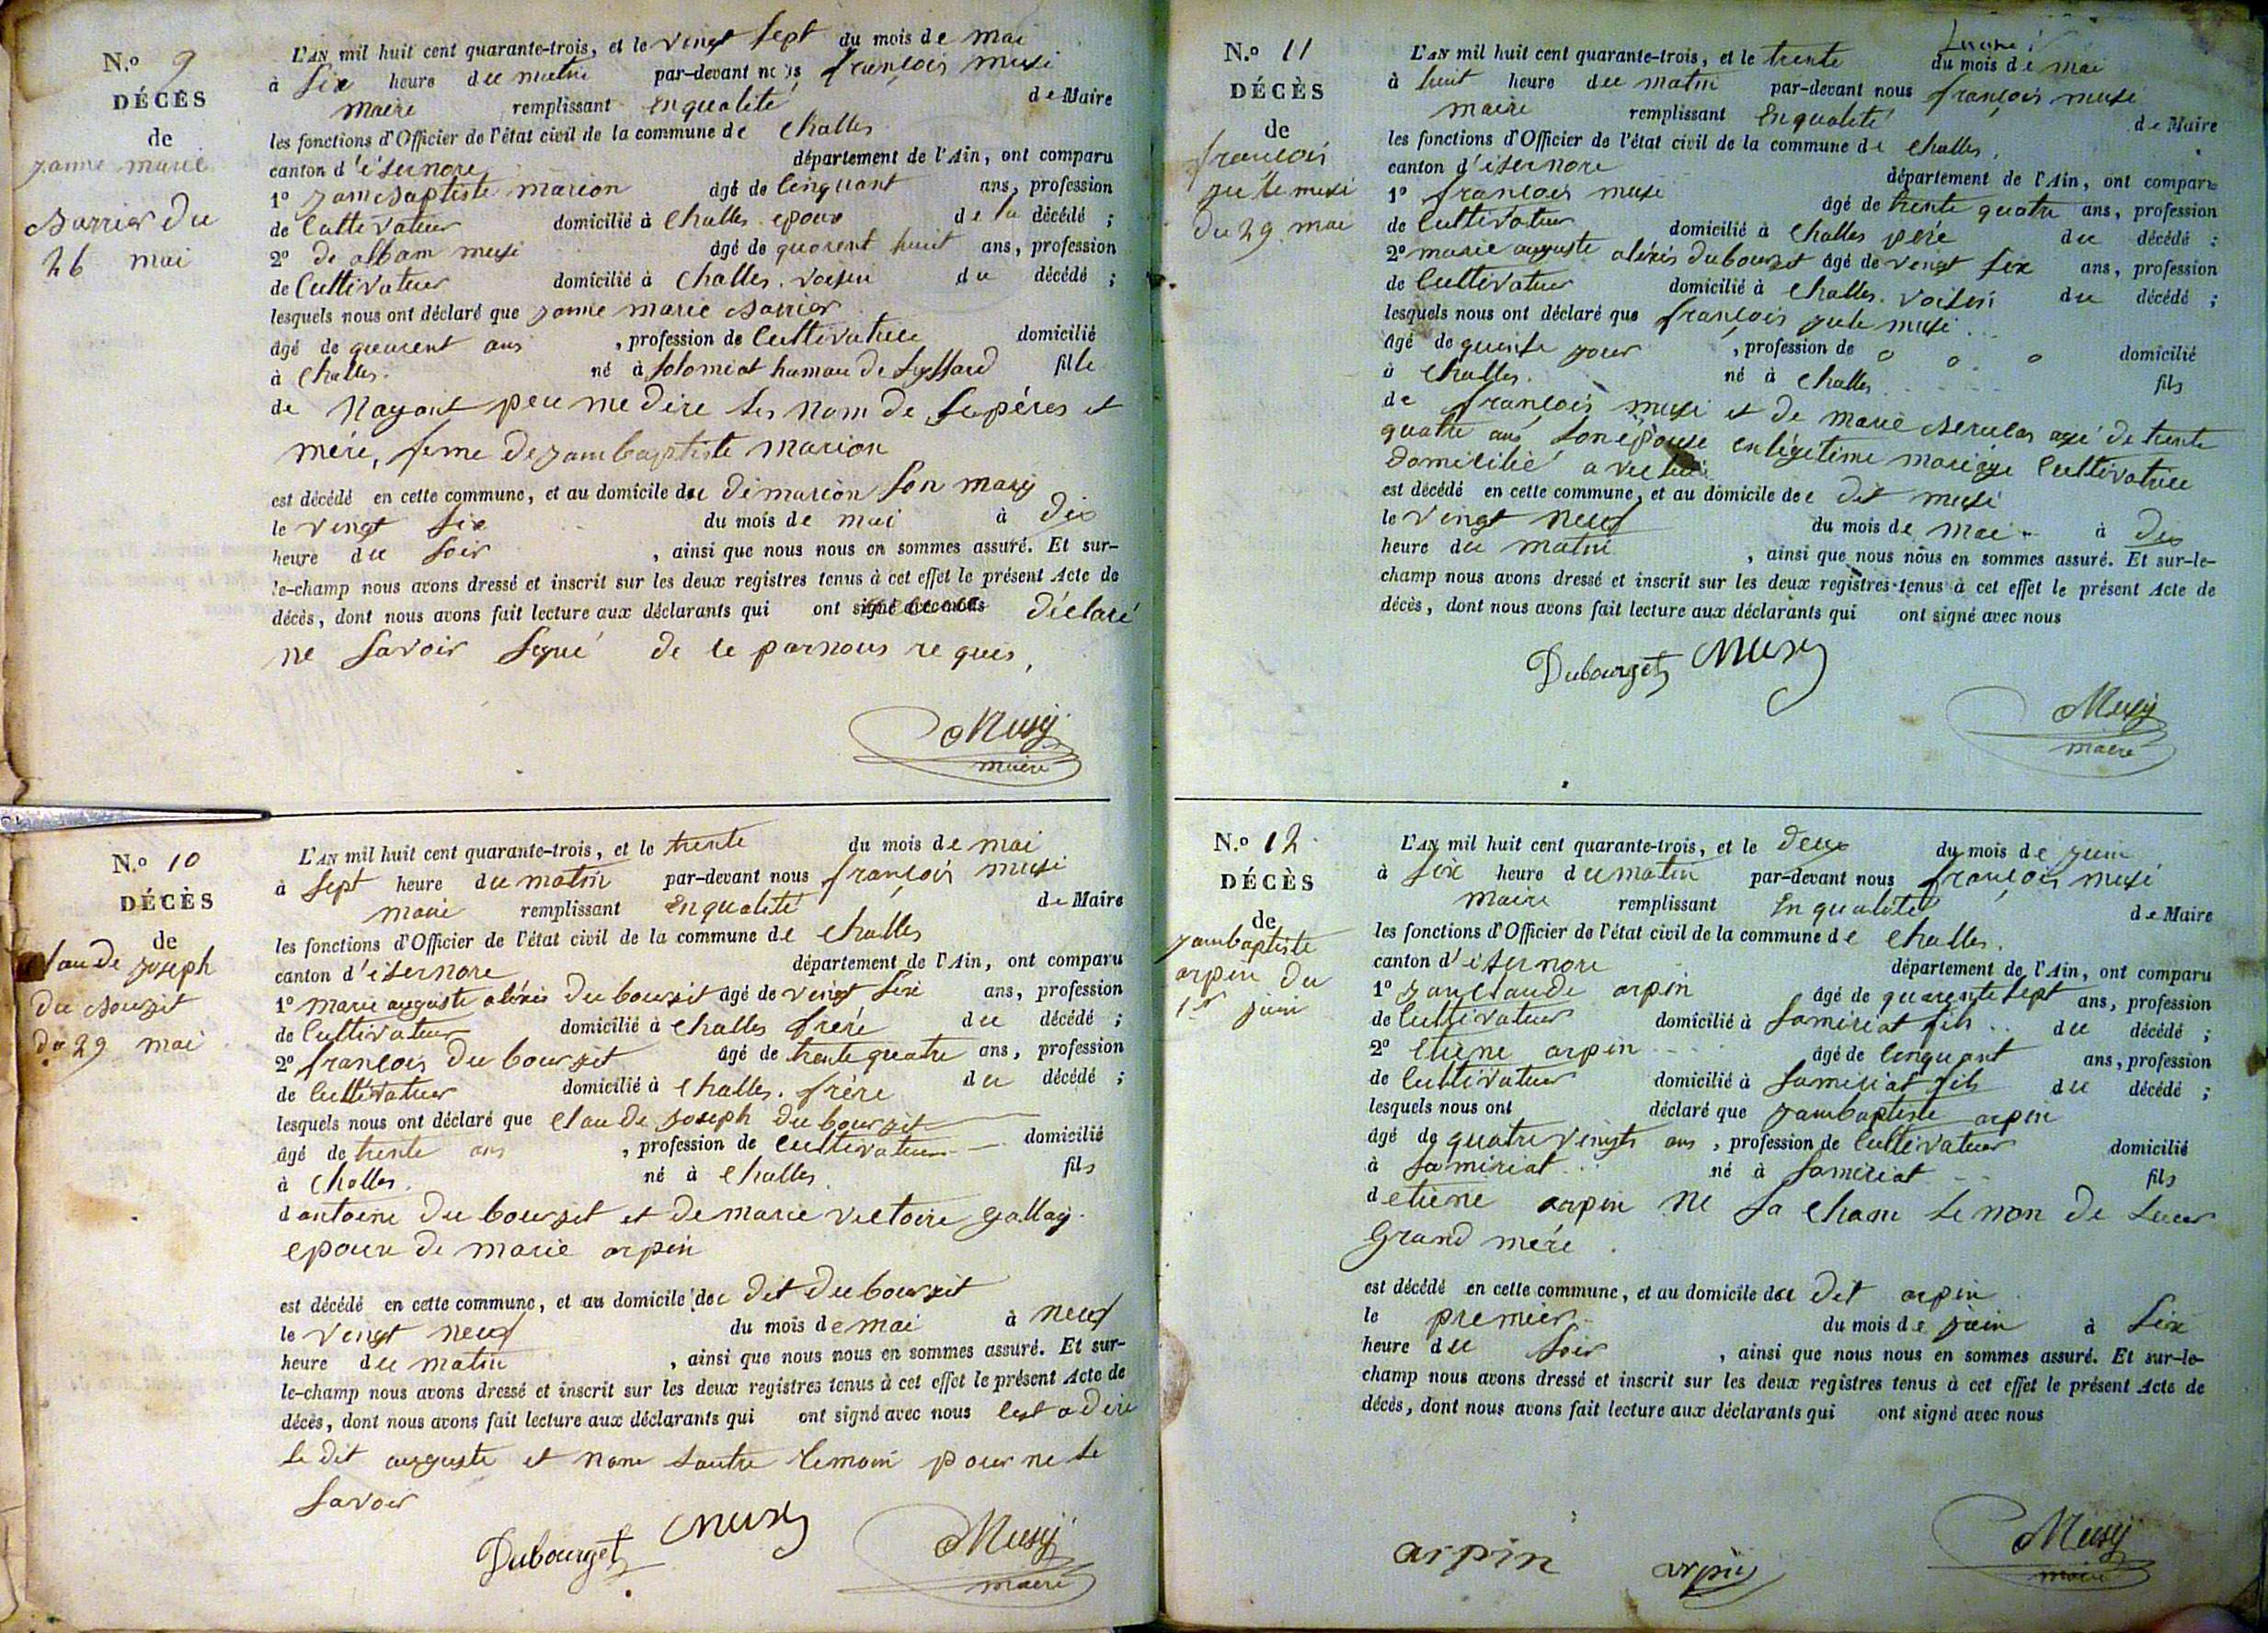 N.º 9
DÉCÈS
de
janne marie
Barrier du
26 mai
L'AN mil huit cent quarante-trois, et le vingt sept du mois de mai
à six heure du matin par-devant nous françois musi
maire remplissant en qualité de Maire
les fonctions d'Officier de l'état civil de la commune de challes
canton d'isernore département de l'Ain, ont comparu
1º janbaptiste marion âgé de cinquant ans, profession
de cultivateur domicilié à challes epoux de la décédé ;
2º de albam musi âgé de quarent huit ans, profession
de cultivateur domicilié à challes. voisin du décédé ;
lesquels nous ont déclaré que janne marie Barrier
âgé de quarent ans , profession de cultivatrice domicilié
à challes. né à solomiat hamau de Lyssard fille
de Nayant peu me dire les nom de ses péres et
mére, feme de jambaptiste marion
est décédé en cette commune, et au domicile du di marion son mary
le vingt six du mois de mai à dix
heure du soir , ainsi que nous nous en sommes assuré. Et sur-
le-champ nous avons dressé et inscrit sur les deux registres tenus à cet effet le présent Acte de
décès, dont nous avons fait lecture aux déclarants qui ont signé avec nous déclaré
ne savoir signé de ce par nous requis,
Musy
maire
N.º 10
DÉCÈS
de
claude joseph
du bourjit
du 29 mai
L'AN mil huit cent quarante-trois, et le trente du mois de mai
à sept heure du matin par-devant nous françois musi
maire remplissant en qualité de Maire
les fonctions d'Officier de l'état civil de la commune de challes
canton d'isernore département de l'Ain, ont comparu
1º marie auguste aléxis du bourjit âgé de vingt six ans, profession
de cultivateur domicilié à challes frére du décédé ;
2º françois du bourjit âgé de trente quatre ans, profession
de cultivateur domicilié à challes. frére du décédé ;
lesquels nous ont déclaré que claude joseph du bourjit
âgé de trente ans , profession de cultivateur domicilié
à challes. né à challes. fils
d'antoine du bourjit et de marie victoire gallay.
epoux de marie arpin
est décédé en cette commune, et au domicile du dit du bourjit
le vingt neuf du mois de mai à neuf
heure du matin , ainsi que nous nous en sommes assuré. Et sur-
le-champ nous avons dressé et inscrit sur les deux registres tenus à cet effet le présent Acte de
décès, dont nous avons fait lecture aux déclarants qui ont signé avec nous cest a dire
le dit auguste et non lautre temoin pour ne le
savoir
Dubourget Musy Musy
maire
N.º 11
DÉCÈS
de
françois
jule musi
du 29 mai
L'AN mil huit cent quarante-trois, et le trente du mois de mai
à huit heure du matin par-devant nous françois musi
maire remplissant en qualité de Maire
les fonctions d'Officier de l'état civil de la commune de challes.
canton d'isernore département de l'Ain, ont comparu
1º françois musi âgé de trente quatre ans, profession
de cultivateur domicilié à challes pére du décédé ;
2º marie auguste aléxis dubourjit âgé de vingt six ans, profession
de cultivateur domicilié à challes. voisin du décédé ;
lesquels nous ont déclaré que françois jule musi.
âgé de quinse jour , profession de o o o domicilié
à challes. né à challes fils
de françois musi et de marie agé de trente
quatre ans son épouse en légitime mariage cultivatrice
domicilié avec
est décédé en cette commune, et au domicile du dit musi
le vingt neuf du mois de mai à dix
heure du matin , ainsi que nous nous en sommes assuré. Et sur-le-
champ nous avons dressé et inscrit sur les deux registres tenus à cet effet le présent Acte de
décès, dont nous avons fait lecture aux déclarants qui ont signé avec nous
Dubourget Musy
Musy
maire
N.º 12
DÉCÈS
de
jambaptiste
arpin du
1er juin
L'AN mil huit cent quarante-trois, et le deux du mois de juin
à six heure du matin par-devant nous françois musi
maire remplissant en qualité de Maire
les fonctions d'Officier de l'état civil de la commune de challes.
canton d'isernore département de l'Ain, ont comparu
1º janclaude arpin âgé de quarente sept ans, profession
de cultivateur domicilié à samiriat fils du décédé ;
2º etiene arpin âgé de cinquant ans, profession
de cultivateur domicilié à samiriat fils du décédé ;
lesquels nous ont déclaré que jambaptiste arpin
âgé de quatre vingts ans , profession de cultivateur domicilié
à samiriat né à samiriat fils
d etiene arpin ne sachant le non de leur
grand mére.
est décédé en cette commune, et au domicile du dit arpin
le premier du mois de juin à six
heure du soir , ainsi que nous nous en sommes assuré. Et sur-le-
champ nous avons dressé et inscrit sur les deux registres tenus à cet effet le présent Acte de
décès, dont nous avons fait lecture aux déclarants qui ont signé avec nous
arpin arpin Musy
maire